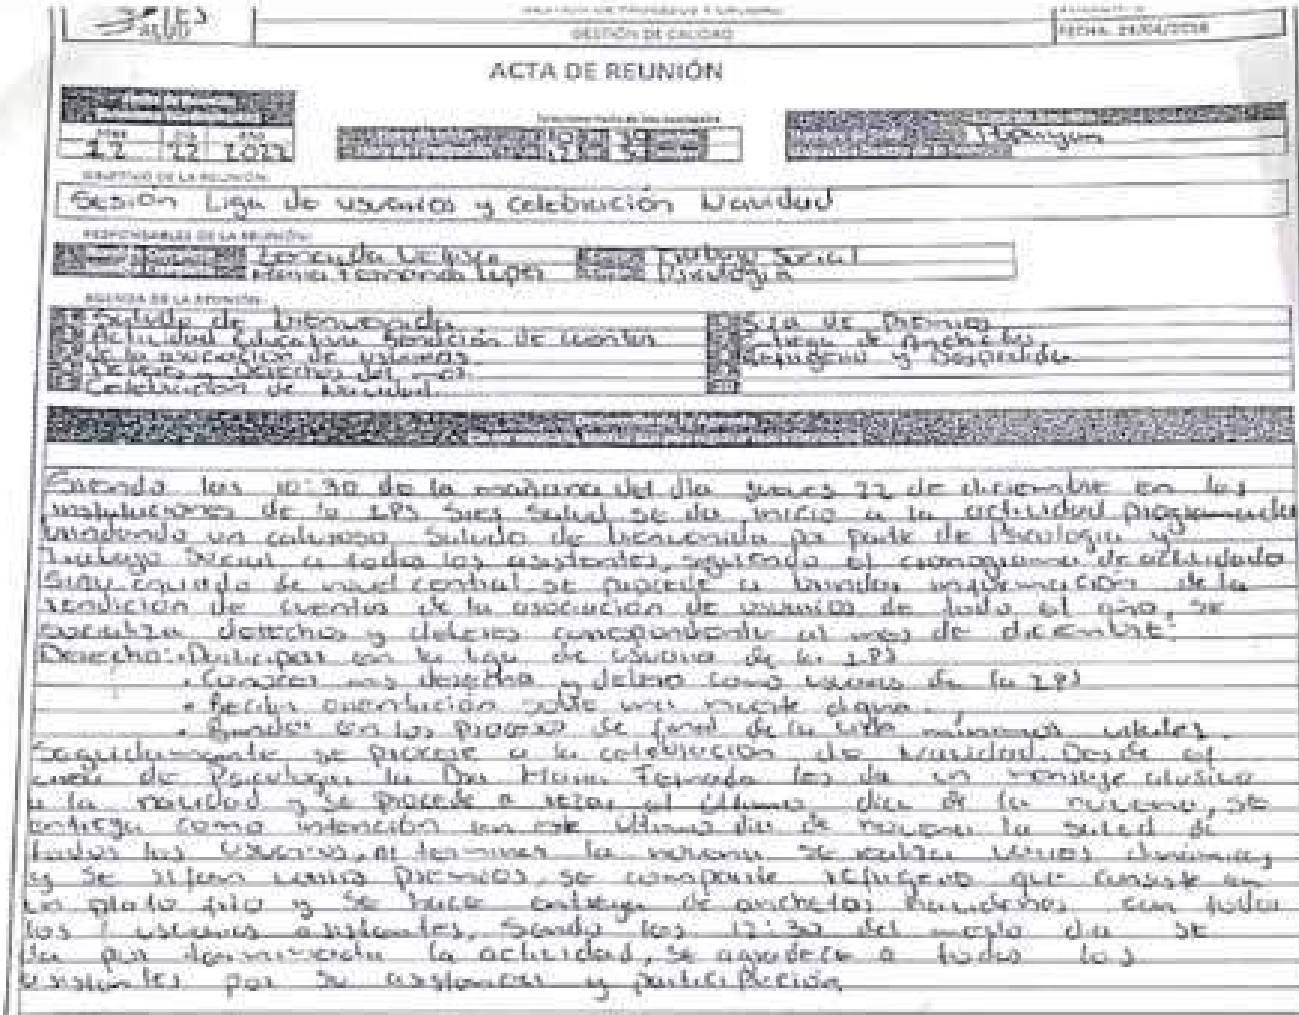 SIES
SALUD
GESTIÓN DE PROCESOS Y CALIDAD
GESTIÓN DE CALIDAD
FECHA:
ACTA DE REUNIÓN
MES DIA AÑO
12 22 2022
OBJETIVO DE LA REUNIÓN:
Sesión Liga de usuarios y celebración Navidad
RESPONSABLES DE LA REUNIÓN:
Trabajo Social
Maria Fernanda Lopez Psicología
AGENDA DE LA REUNIÓN:
Saludo de bienvenida
Actividad Educativa Rendición de cuentas
de la asociación de usuarios.
Deberes y Derechos del mes.
Celebración de Navidad.
Rifa de Premios
Entrega de Anchetas
Refrigerio y Despedida
Siendo las 10:30 de la mañana del día jueves 22 de diciembre en las
instalaciones de la IPS Sies Salud se da inicio a la actividad programada
brindando un caluroso saludo de bienvenida por parte de Psicología y
Trabajo Social a todos los asistentes, siguiendo el cronograma de actividades
enviado de nivel central se procede a brindar información de la
rendición de cuentas de la asociación de usuarios de todo el año, se
socializa derechos y deberes correspondiente al mes de diciembre:
Derecho: Participar en la liga de usuarios de la IPS
• Conocer mis derecho y deberes como usuario de la IPS
• Recibir orientación sobre una muerte digna.
• en los proceso de final de la vida
Seguidamente se procede a la celebración de Navidad. Desde el
área de Psicología la Dra Maria Fernanda les da un mensaje alusivo
a la navidad y se procede a rezar el último día de la novena, se
entrega como intención en este último día de novena la salud de
todos los usuarios, al terminar la novena se realiza varias dinámicas
y se rifan varios premios, se comparte refrigerio que consiste en
un plato frio y se hace entrega de anchetas navideñas con todos
los usuarios asistentes, Siendo las 12:30 del medio dia se
da por terminada la actividad, se agradece a todos los
asistentes por su asistencia y participación